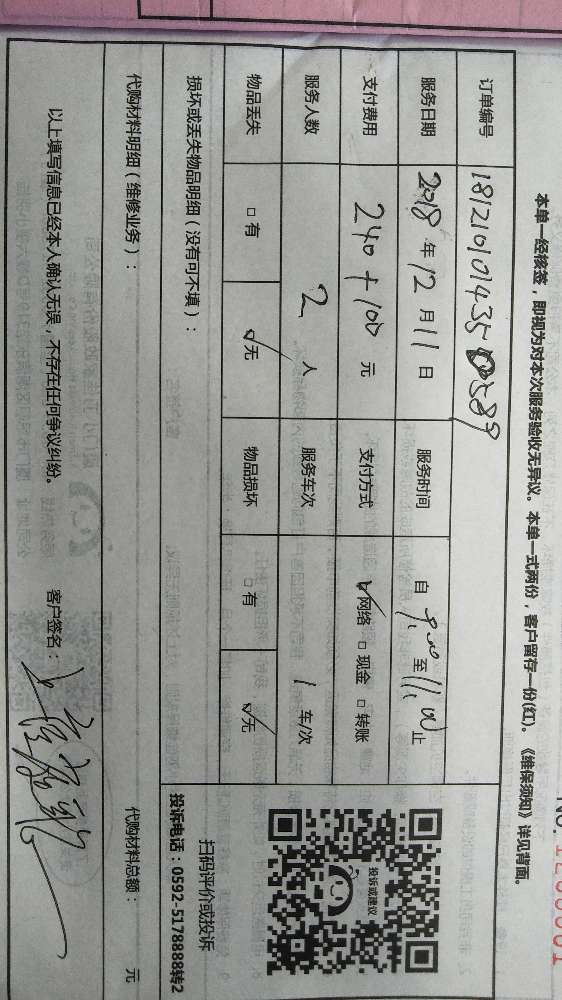 本单一经核签，即视为对本次服务验收无异议。本单一式两份，客户留存一份(红)。《维保须知》详见背面。
订单编号 181210101435 0589
服务日期 2018年12月11日 服务时间 自9:00至11:00止
支付费用 240+100 元 支付方式 ☑网络 □现金 □转账
服务人数 2 人 服务车次 1 车/次
物品丢失 □有 ☑无 物品损坏 □有 ☑无
损坏或丢失物品明细（没有可不填）：
投诉或建议
扫码评价或投诉
投诉电话：0592-5178888转2
代购材料明细（维修业务）： 代购材料总额： 元
以上填写信息已经本人确认无误，不存在任何争议纠纷。 客户签名：